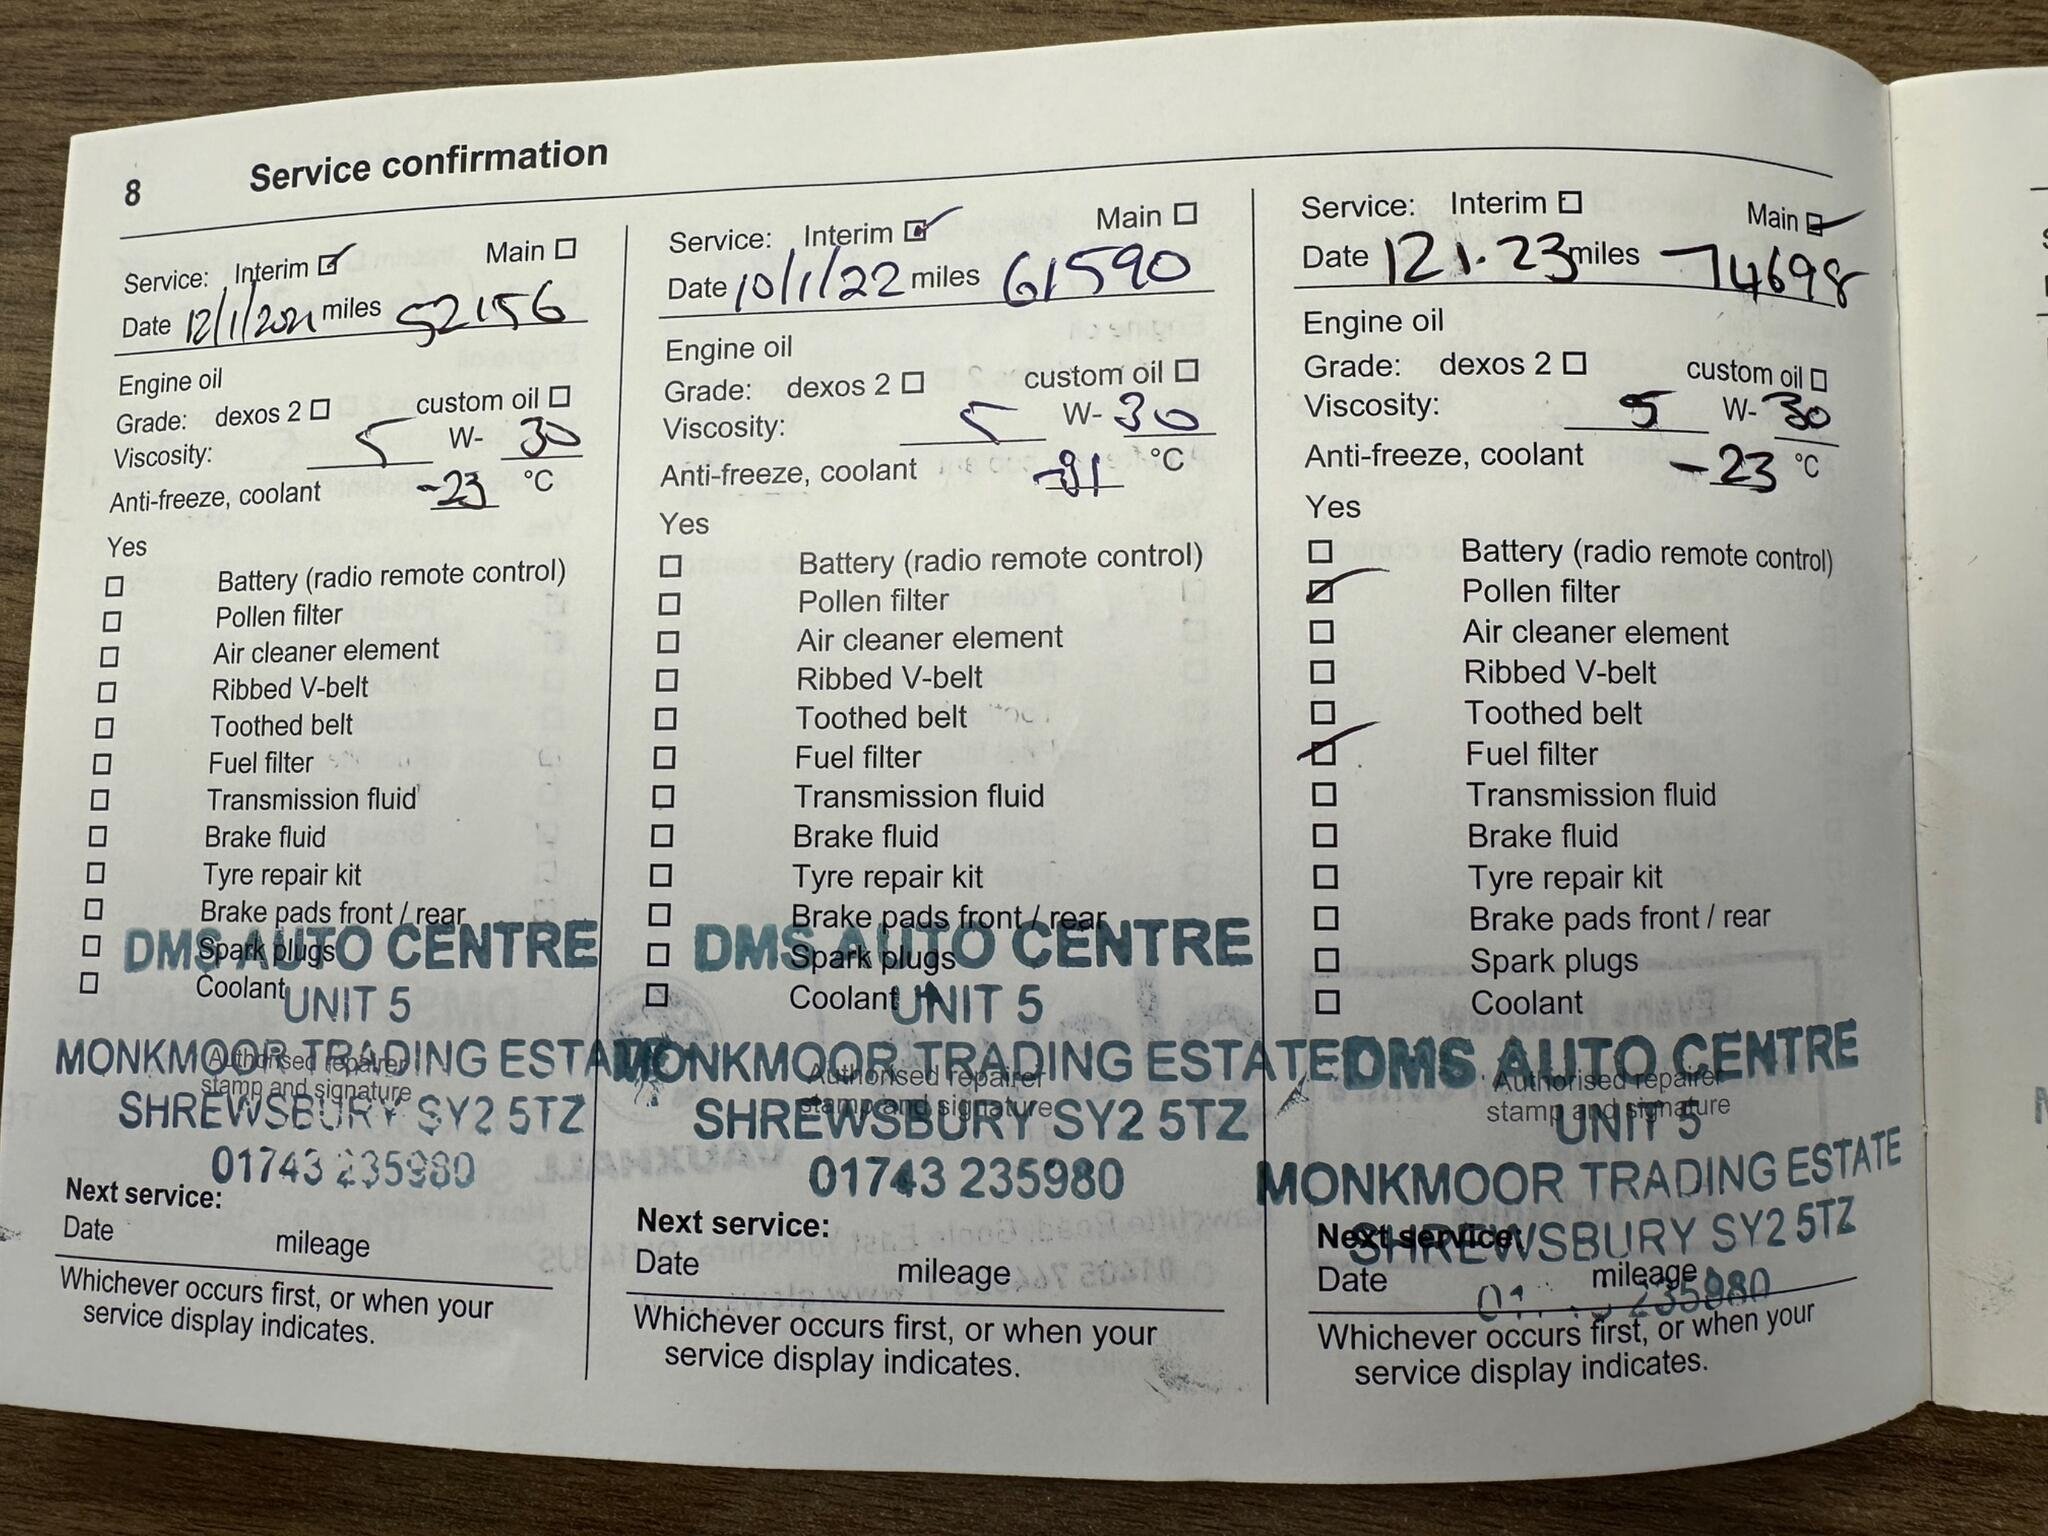 8 Service confirmation
Service: Interim Main
Date 12/1/2021 miles 52156
Engine oil
Grade: dexos 2 custom oil
Viscosity: 5 W- 30
Anti-freeze, coolant -23 °C
Yes
Battery (radio remote control)
Pollen filter
Air cleaner element
Ribbed V-belt
Toothed belt
Fuel filter
Transmission fluid
Brake fluid
Tyre repair kit
Brake pads front / rear
Spark plugs
Coolant
DMS AUTO CENTRE
UNIT 5
MONKMOOR TRADING ESTATE
SHREWSBURY SY2 5TZ
01743 235980
Authorised repairer
stamp and signature
Next service:
Date mileage
Whichever occurs first, or when your
service display indicates.
Service: Interim Main
Date 10/1/22 miles 61590
Engine oil
Grade: dexos 2 custom oil
Viscosity: 5 W- 30
Anti-freeze, coolant °C
Yes
Battery (radio remote control)
Pollen filter
Air cleaner element
Ribbed V-belt
Toothed belt
Fuel filter
Transmission fluid
Brake fluid
Tyre repair kit
Brake pads front / rear
Spark plugs
Coolant
DMS AUTO CENTRE
UNIT 5
MONKMOOR TRADING ESTATE
SHREWSBURY SY2 5TZ
01743 235980
Authorised repairer
stamp and signature
Next service:
Date mileage
Whichever occurs first, or when your
service display indicates.
Service: Interim Main
Date 121.23 miles 74698
Engine oil
Grade: dexos 2 custom oil
Viscosity: 5 W- 30
Anti-freeze, coolant -23 °C
Yes
Battery (radio remote control)
Pollen filter
Air cleaner element
Ribbed V-belt
Toothed belt
Fuel filter
Transmission fluid
Brake fluid
Tyre repair kit
Brake pads front / rear
Spark plugs
Coolant
DMS AUTO CENTRE
Authorised repairer
stamp and signature
UNIT 5
MONKMOOR TRADING ESTATE
SHREWSBURY SY2 5TZ
235980
Next service:
Date mileage
Whichever occurs first, or when your
service display indicates.